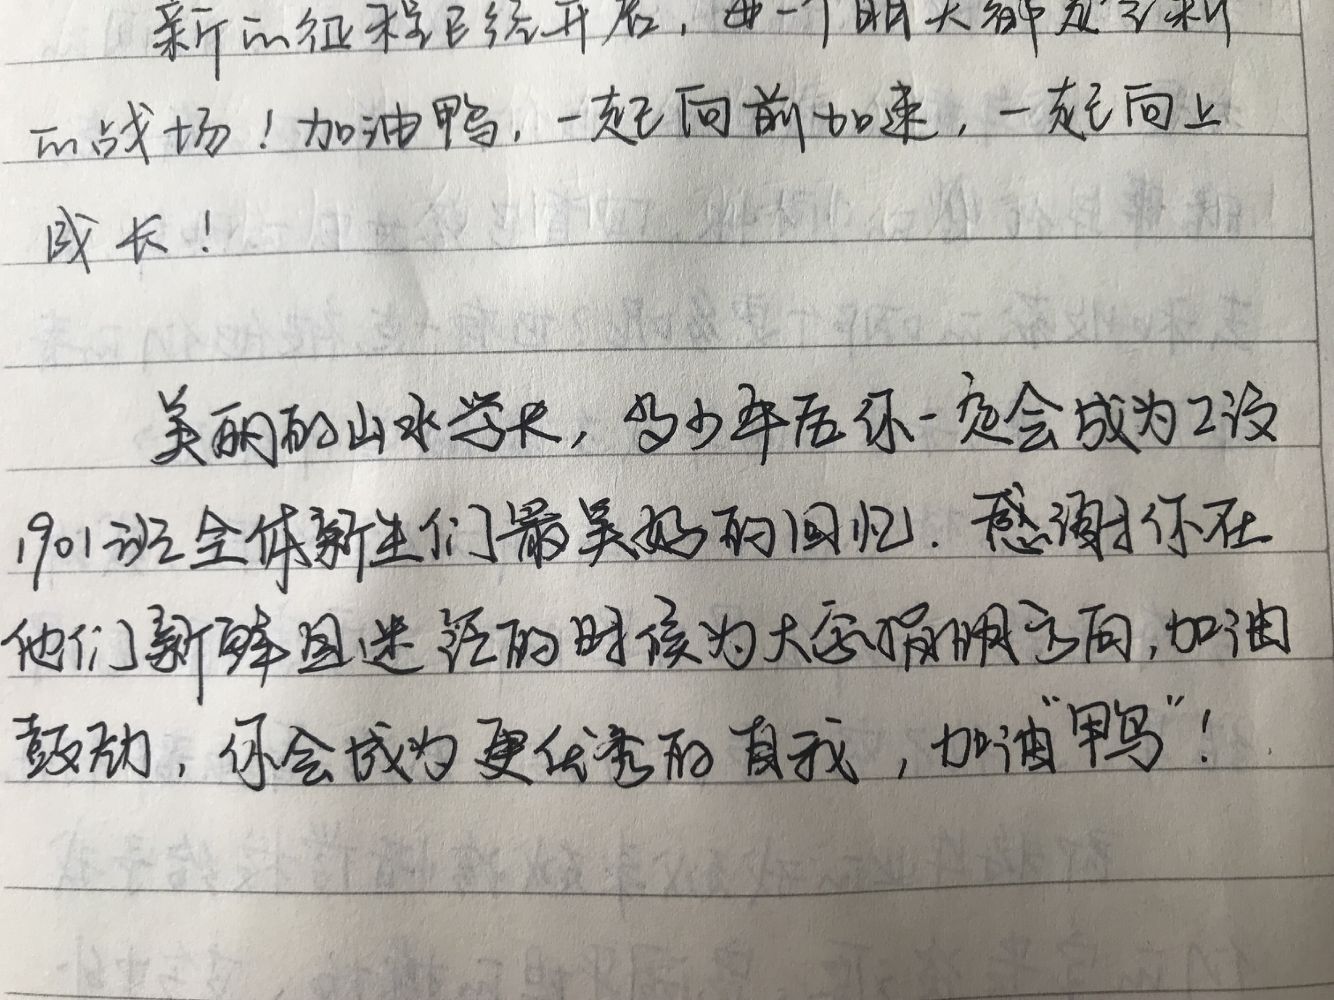 新的征程已经开启，每一个明天都是全新
的战场！加油鸭，一起向前加速，一起向上
成长！
美丽的山水学长，多少年后你一定会成为工设
1901班全体新生们最美好的回忆．感谢你在
他们新鲜且迷茫的时候为大家指明方向，加油
鼓劲，你会成为更优秀的自我，加油“鸭”！